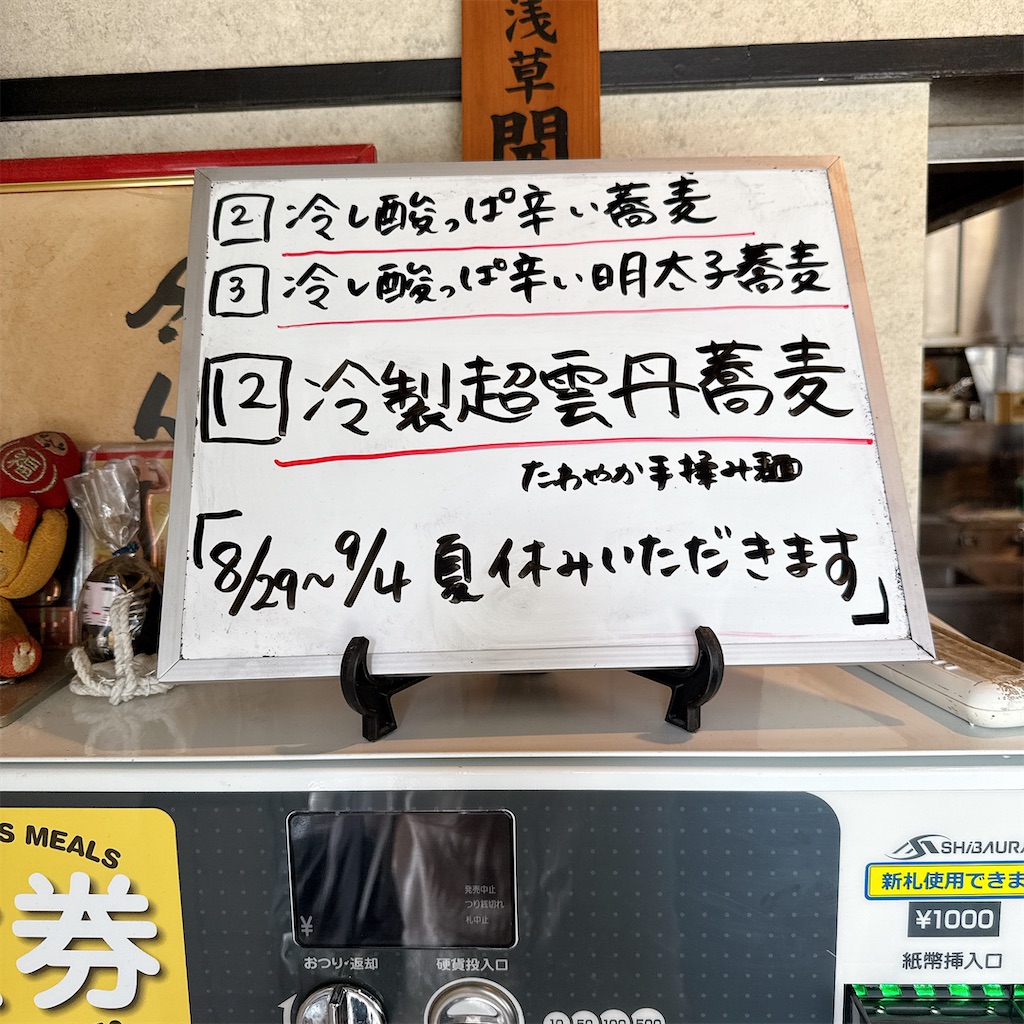 浅草
2 冷し酸っぱ辛い蕎麦
3 冷し酸っぱ辛い明太子蕎麦
12 冷製超雲丹蕎麦
たわやか手揉み麺
「8/29〜9/4 夏休みいただきます」
S MEALS
券
¥
発売中止
つり銭切れ
札中止
おつり・返却
硬貨投入口
10 50 100 500
SHIBAURA
新札使用できま
¥1000
紙幣挿入口